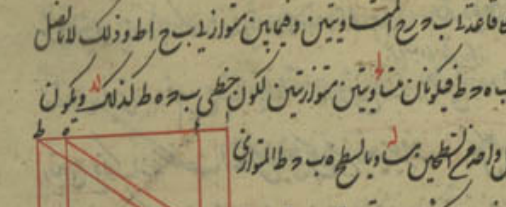 قاعدتى ب ح ر ح المتساويتين وفيما بين متوازيى ب ح ا ط وذلك لانا نصل
ب ه ح ط فيكونان متساويين متوازيين لكون خطى ب ح ه ط كذلك ويكون
واحد من السطحين مساويا لسطح ه ب ح ط المتوازى
ط ه